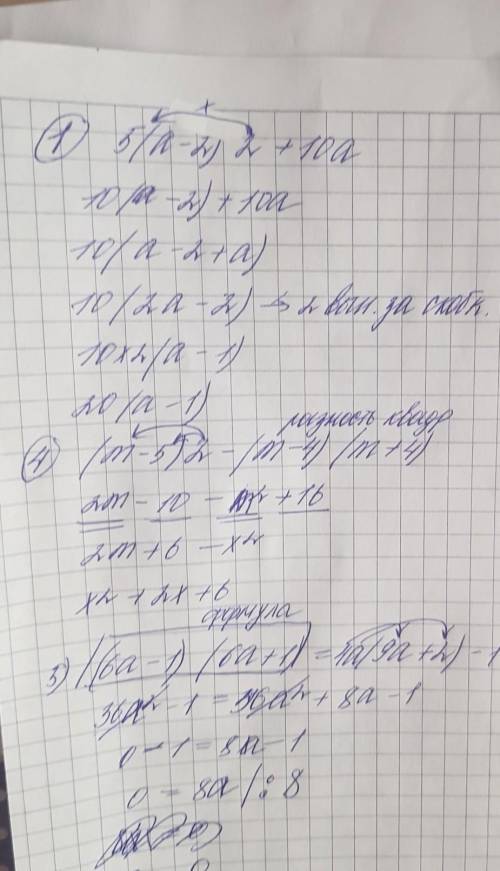 1 5(a-2) 2 +10a
10(a-2)+10a
10(a-2+a)
10(2a-2) → 2 вын. за скобк.
10×2(a-1)
20(a-1)
разность квадр
4 (m-5)2-(m-4)(m+4)
2m-10-m²+16
2m+6-x2
x2+2x+6
формула
5) (6a-1)(6a+1)=4a(9a+2)-1
36a²-1=36a²+8a-1
0-1=8a-1
0=8a/:8